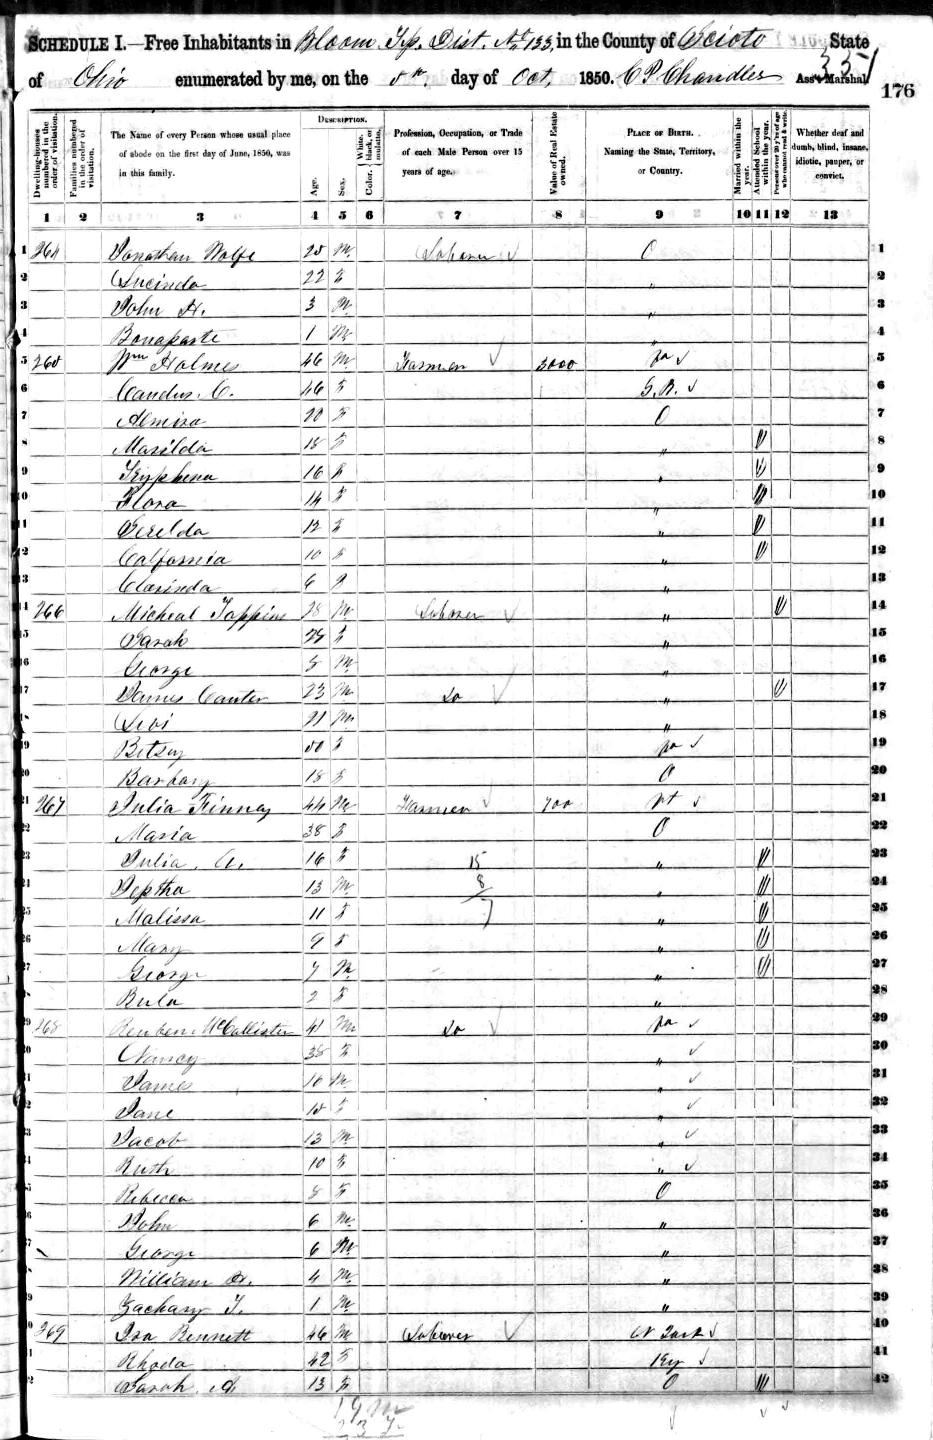 SCHEDULE I.—Free Inhabitants in Bloom Tp. Dist. No 133, in the County of Scioto State
of Ohio enumerated by me, on the 8th day of Oct, 1850. C P Chandler Ass't Marshal.
351
176
Dwelling-houses numbered in the order of visitation.
Families numbered in the order of visitation.
The Name of every Person whose usual place of abode on the first day of June, 1850, was in this family.
DESCRIPTION.
Age.
Sex.
Color. { White, black, or mulatto.
Profession, Occupation, or Trade of each Male Person over 15 years of age.
Value of Real Estate owned.
PLACE OF BIRTH. Naming the State, Territory, or Country.
Married within the year.
Attended School within the year.
Persons over 20 y'rs of age who cannot read & write.
Whether deaf and dumb, blind, insane, idiotic, pauper, or convict.
1 2 3 4 5 6 7 8 9 10 11 12 13
1 264 Jonathan Wolfe 25 M Laborer O 1
2 Lucinda 22 F " 2
3 John H. 3 M " 3
4 Bonaparte 1 M " 4
5 265 Wm Holmes 46 M Farmer 3000 Pa 5
6 Candus. C. 46 F 6
7 Almira 20 F O 7
8 Marilda 18 F " 8
9 Tryphena 16 F " 9
10 Flora 14 F " 10
11 Serelda 12 F " 11
12 Calfornia 10 F " 12
13 Clarinda 6 F " 13
14 266 Micheal Toppins 28 M Laborer " 14
15 Sarah 28 F " 15
16 George 5 M " 16
17 James Canter 23 M Do " 17
18 Levi 21 M " 18
19 Betsey 50 F Pa 19
20 Barbary 18 F O 20
21 267 Julia Finney 44 M Farmer 700 Vt 21
22 Maria 38 F O 22
23 Julia. A. 16 F 15 " 23
24 Jeptha 13 M 8 " 24
25 Malissa 11 F 7 " 25
26 Mary 9 F " 26
27 George 7 M " 27
28 Bula 2 F " 28
29 268 Reuben McCallister 41 M Do Pa 29
30 Nancy 38 F " 30
31 James 16 M " 31
32 Jane 15 F " 32
33 Jacob 13 M " 33
34 Ruth 10 F " 34
35 Rebecca 8 F O 35
36 John 6 M " 36
37 George 6 M " 37
38 William H. 4 M " 38
39 Zachary T. 1 M " 39
40 269 Ira Bennett 46 M Laborer N York 40
41 Rhoda 42 F Ky 41
42 Sarah. A 13 F O 42
19 M
23 F